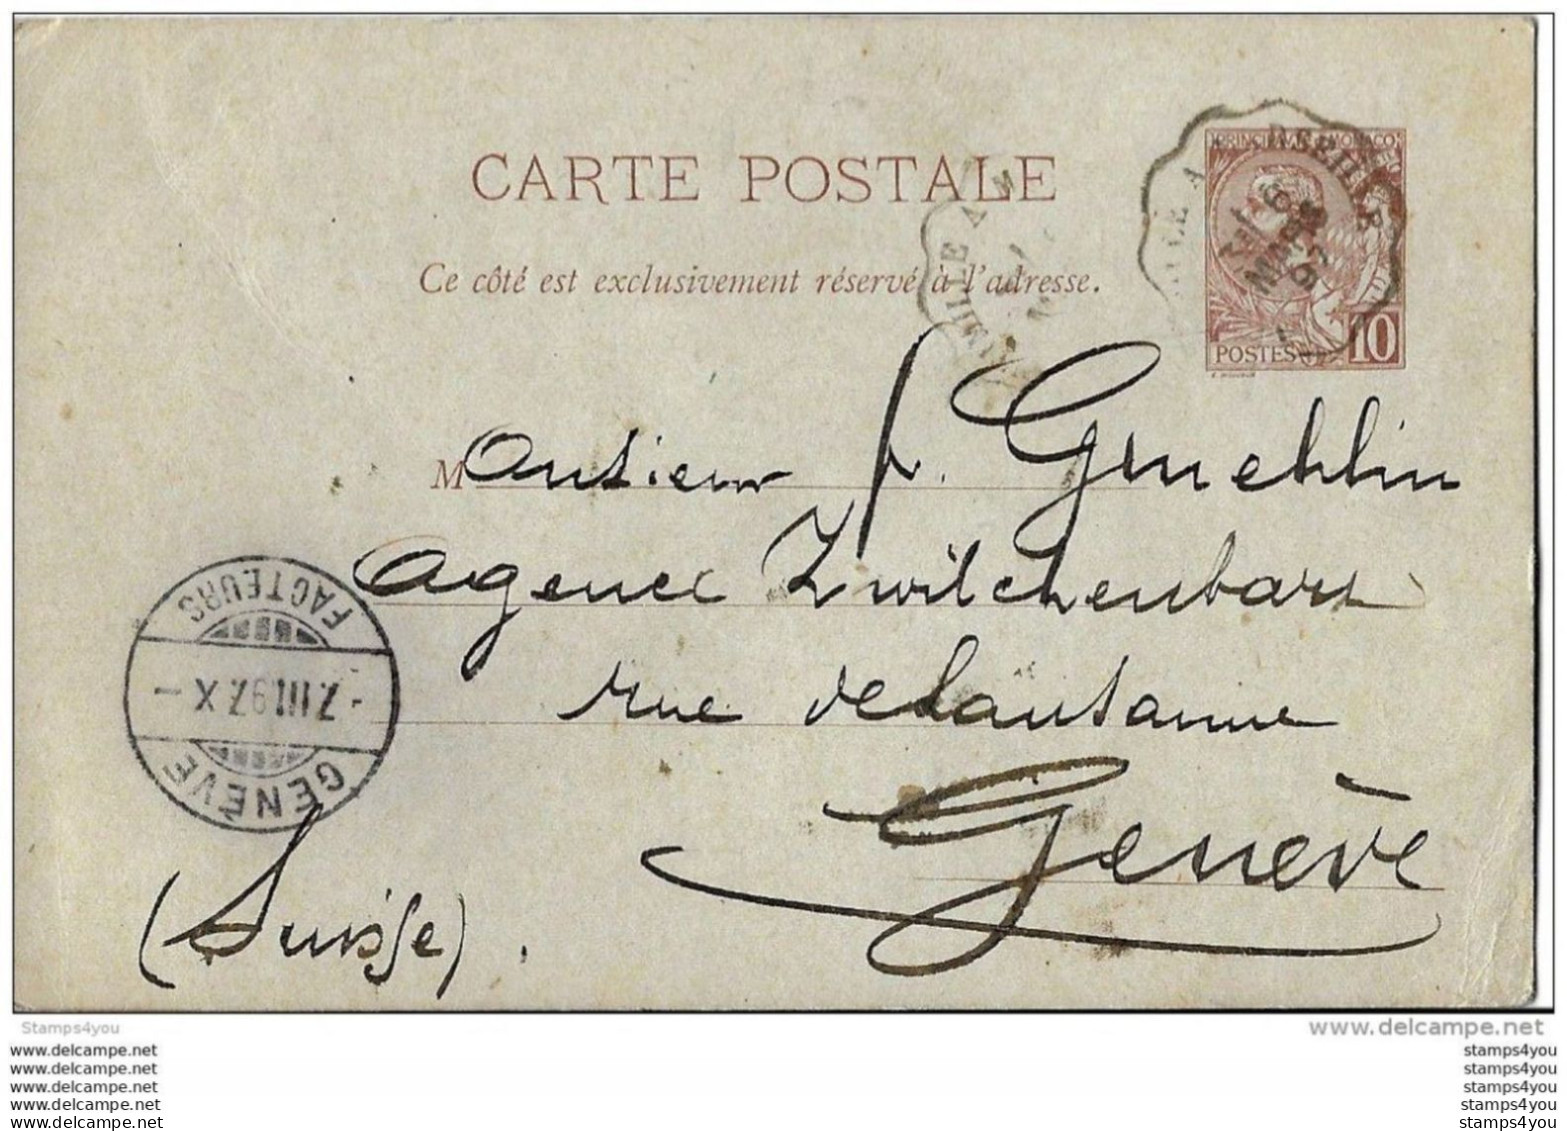 PRINCIPAUTÉ DE MONACO
CARTE POSTALE
Ce côté est exclusivement réservé à l'adresse.
POSTES 10
6
MARS
97
Monsieur
Agence Zwilchenbart
rue de Lausanne
Genève
(Suisse).
FACTEURS
-7.III.97.X-
GENÈVE
Stamps4you
www.delcampe.net
www.delcampe.net
www.delcampe.net
www.delcampe.net
www.delcampe.net
www.delcampe.net
stamps4you
stamps4you
stamps4you
stamps4you
stamps4you